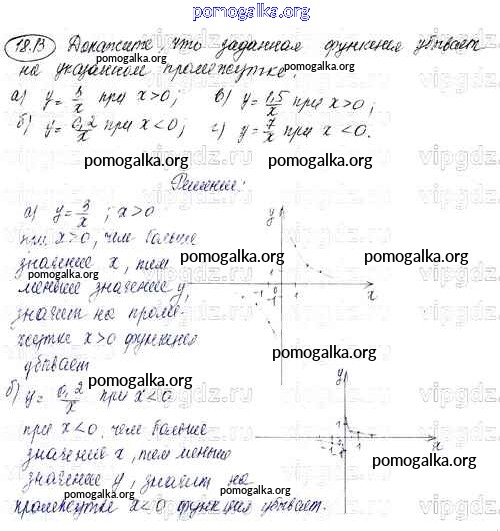 pomogalka.org
18.13 Докажите, что заданная функция убывает
на указанном промежутке:
а) y = 3/x при x>0; в) y = 1,5/x при x>0;
б) y = 0,2/x при x<0; г) y = 7/x при x<0.
pomogalka.org pomogalka.org
Решение:
а) y = 3/x ; x>0
при x>0, чем больше
значение x, тем
меньше значение y,
значит на проме-
жутке x>0 функция
убывает
pomogalka.org pomogalka.org
y
1
-1 0 1
-1
x
pomogalka.org
б) y = 0,2/x при x<0
при x<0, чем больше
значение x, тем меньше
значение y, значит на
промежутке x<0 функция убывает.
pomogalka.org
y
1
-1 1
-1
x
pomogalka.org
vipgdz.ru